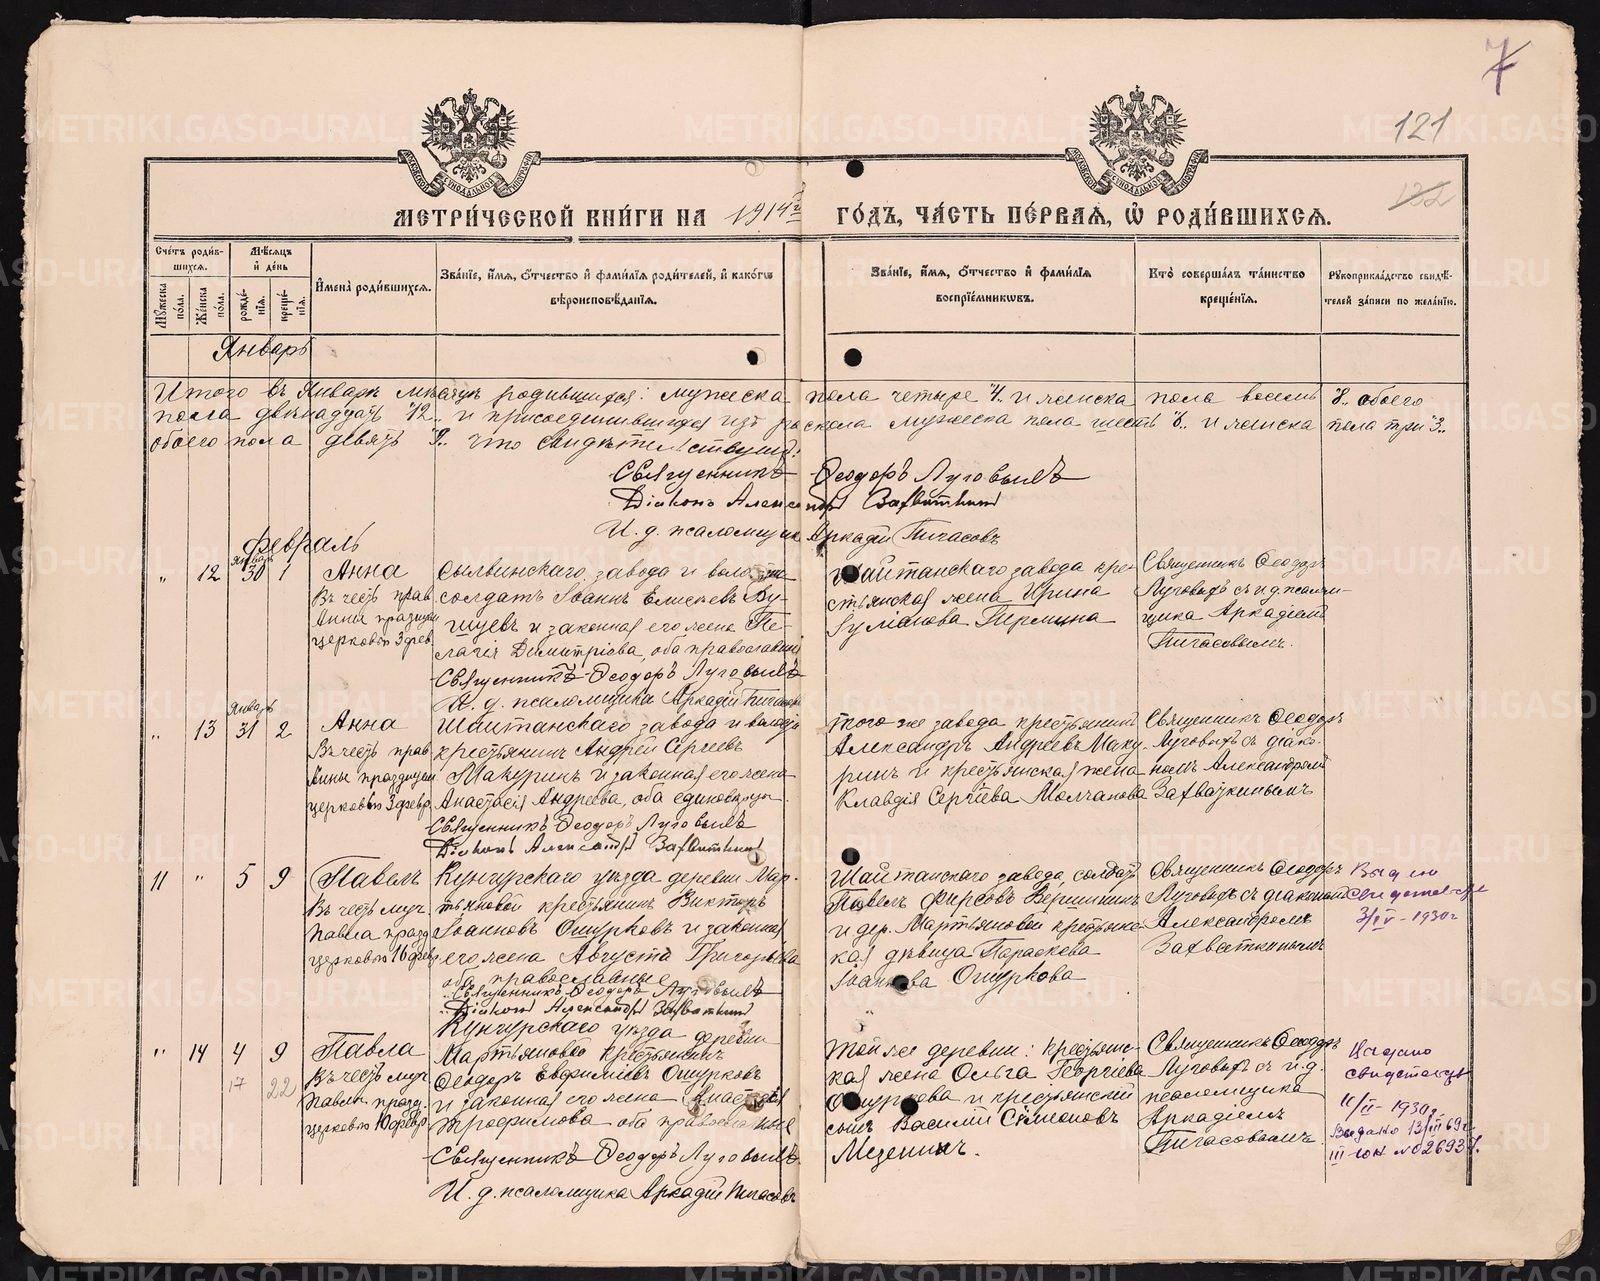 7
121
122
МЕТРИ́ЧЕСКОЙ КНИ́ГИ НА 1914 г. ГО́ДЪ, ЧА́СТЬ ПЕ́РВАЯ, Ѡ҆ РОДИ́ВШИХСЯ.
Сче́тъ роди́вшихся.
Мѣ́сяцъ и҆ де́нь
Мꙋ́жеска по́ла.
Же́нска по́ла.
рожде́нїѧ.
креще́нїѧ.
И҆мена̀ роди́вшихся.
Зва́нїе, и҆́мѧ, ѻ҆́тчество и҆ фами́лїѧ роди́телей, и҆ како́гѡ
вѣроисповѣ́данїѧ.
Зва́нїе, и҆́мѧ, ѻ҆́тчество и҆ фами́лїѧ
воспрїе́мникѡвъ.
Кто̀ соверша́лъ та́инство
креще́нїѧ.
Рꙋкоприкла́дство свидѣ́-
телей за́писи по жела́нїю.
Январь
Итого въ Январѣ мѣсяцѣ родившихся: мужеска пола четыре "4" и женска пола восемь "8" обоего
пола двѣнадцать "12" и присоединившихся изъ раскола мужеска пола шесть "6" и женска пола три "3"
обоего пола девять "9" что свидѣтельствуемъ:
Священникъ Ѳеодоръ Луговыхъ
Діаконъ Александръ Захваткинъ
И. д. псаломщик Аркадій Пигасовъ
Февраль
" 12 январь 30 1 Анна
Въ честь прав.
Анны празднуем
церковью 3 фев.
Сылвинскаго завода и волости
солдатъ Іоаннъ Елисѣевъ Бу-
шуевъ и законная его жена Пе-
лагія Димитріева, оба православные
Священникъ Ѳеодоръ Луговыхъ
И. д. псаломщика Аркадій Пигасовъ
Шайтанскаго завода кре-
стьянская жена Ирина
Пермина
Священникъ Ѳеодоръ
Луговыхъ съ и.д. псалом-
щика Аркадіемъ
Пигасовымъ.
" 13 январь 31 2 Анна
Въ честь прав.
Анны празднуем
церковью 3 февр.
Шайтанскаго завода и волости
крестьянинъ Андрей Сергѣевъ
Макуринъ и законная его жена
Анастасія Андреева, оба единовѣрцы.
Священникъ Ѳеодоръ Луговыхъ
Діаконъ Александръ Захваткинъ
того же завода крестьянинъ
Александръ Андреевъ Маку-
ринъ и крестьянская жена
Клавдія Сергѣева Молчанова
Священникъ Ѳеодоръ
Луговыхъ съ діако-
номъ Александромъ
Захваткинымъ
11 " 5 9 Павелъ
Въ честь муч.
Павла празд.
церковью 16 февр.
Кунгурскаго уѣзда деревни Мар-
тьяновой крестьянинъ Викторъ
Іоанновъ Ошурковъ и законная
его жена Августа Григорьева
оба православные
Священникъ Ѳеодоръ Луговыхъ
Діаконъ Александръ Захваткинъ
Шайтанскаго завода солдатъ
Павелъ Фирсовъ Вершининъ
и дер. Мартьяновой крестьянс-
кая дѣвица Параскева
Іоаннова Ошуркова
Священникъ Ѳеодоръ
Луговыхъ съ діакономъ
Александромъ
Захваткинымъ
Выдано
свидетельство
3/IV - 1930 г
" 14 4 9 Павла
17 22
Въ честь муч.
Павлы празд.
церковью 10 февр.
Кунгурскаго уѣзда деревни
Мартьяновой крестьянинъ
Ѳеодоръ Евфиміевъ Ошурковъ
и законная его жена Анастасія
Трофимова оба православные
Священникъ Ѳеодоръ Луговыхъ.
И. д. псаломщика Аркадій Пигасовъ
Той же деревни: крестьянс-
кая жена Ольга Георгіева
Ошуркова и крестьянскій
сынъ Василій Симоновъ
Мезенинъ.
Священникъ Ѳеодоръ
Луговыхъ съ и.д.
псаломщика
Аркадіемъ
Пигасовымъ
Выдано
свидетельст
11/II - 1930 г
Выдано 13/III 69 г.
III-ЮА № 026937.
METRIKI.GASO-URAL.RU